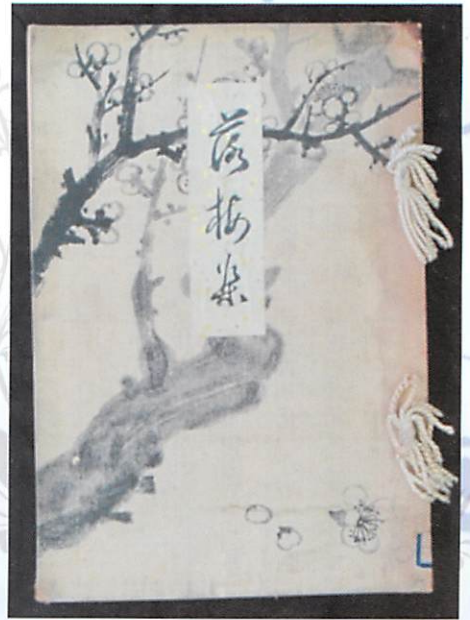 落梅集